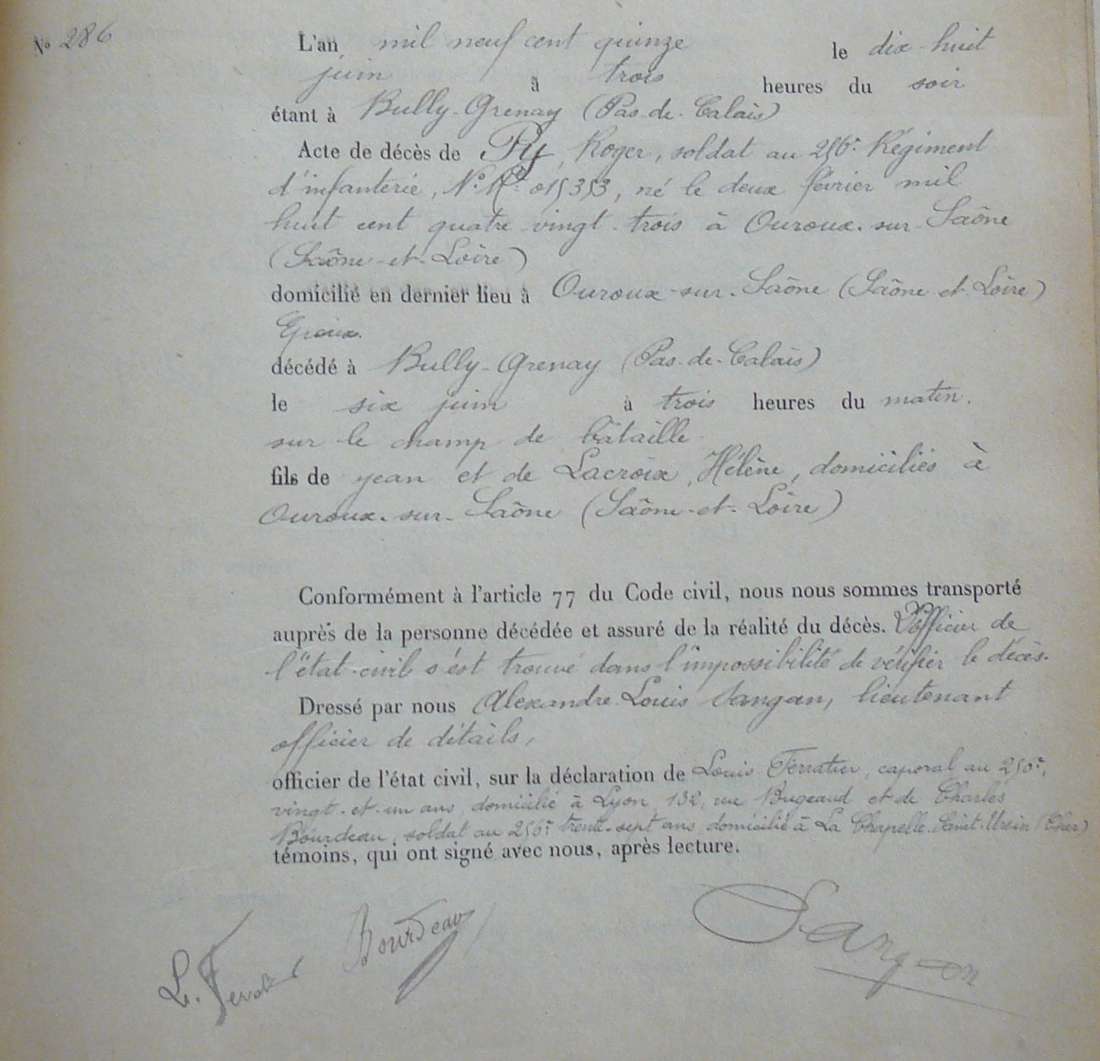 N° 286
L'an mil neuf cent quinze le dix-huit
juin à trois heures du soir
étant à Bully-Grenay (Pas-de-Calais)
Acte de décès de Py, Roger, soldat au 256e Régiment
d'infanterie, N° Re 015353, né le deux février mil
huit cent quatre-vingt-trois à Ouroux-sur-Saône
(Saône-et-Loire)
domicilié en dernier lieu à Ouroux-sur-Saône (Saône-et-Loire)
Epoux.
décédé à Bully-Grenay (Pas-de-Calais)
le six juin à trois heures du matin.
sur le champ de bataille
fils de Jean et de Lacroix, Hélène, domiciliés à
Ouroux-sur-Saône (Saône-et-Loire)
Conformément à l'article 77 du Code civil, nous nous sommes transporté
auprès de la personne décédée et assuré de la réalité du décès. L'officier de
l'état-civil s'est trouvé dans l'impossibilité de vérifier le décès.
Dressé par nous Alexandre-Louis Sangan, lieutenant
officier de détails,
officier de l'état civil, sur la déclaration de Louis caporal au
vingt-et-un ans domicilié à Lyon, 132, rue Bugeaud et de Charles
Bourdeau, soldat au 256e trente-sept ans domicilié à La Chapelle-Saint-Ursin (Cher)
témoins, qui ont signé avec nous, après lecture.
L. Bourdeau Sangan